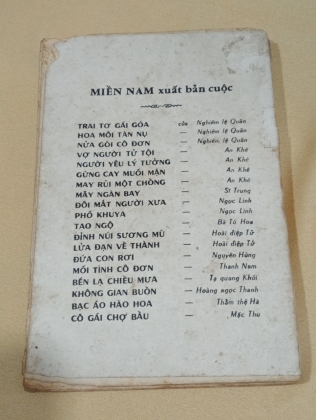 MIỀN NAM xuất bản cuộc
TRAI TƠ GÁI GÓA của Nghiêm lệ Quân
HOA MÔI TÀN NỤ — Nghiêm lệ Quân
NỬA GÓI CÔ ĐƠN — Nghiêm lệ Quân
VỢ NGƯỜI TỬ TỘI — An Khê
NGƯỜI YÊU LÝ TƯỞNG — An Khê
GỪNG CAY MUỐI MẶN — An Khê
MAY RỦI MỘT CHỒNG — An Khê
MÂY NGÀN BAY — Sĩ Trung
ĐÔI MẮT NGƯỜI XƯA — Ngọc Linh
PHỐ KHUYA — Ngọc Linh
TAO NGỘ — Bà Tú Hoa
ĐỈNH NÚI SƯƠNG MÙ — Hoài điệp Tử
LỬA ĐẠN VỀ THÀNH — Hoài điệp Tử
ĐỨA CON RƠI — Nguyên Hùng
MỐI TÌNH CÔ ĐƠN — Thanh Nam
BẾN LẠ CHIỀU MƯA — Tạ quang Khôi
KHÔNG GIAN BUỒN — Hoàng ngọc Thanh
BẠC ÁO HÀO HOA — Thẩm thệ Hà
CÔ GÁI CHỢ BẦU — Mặc Thu